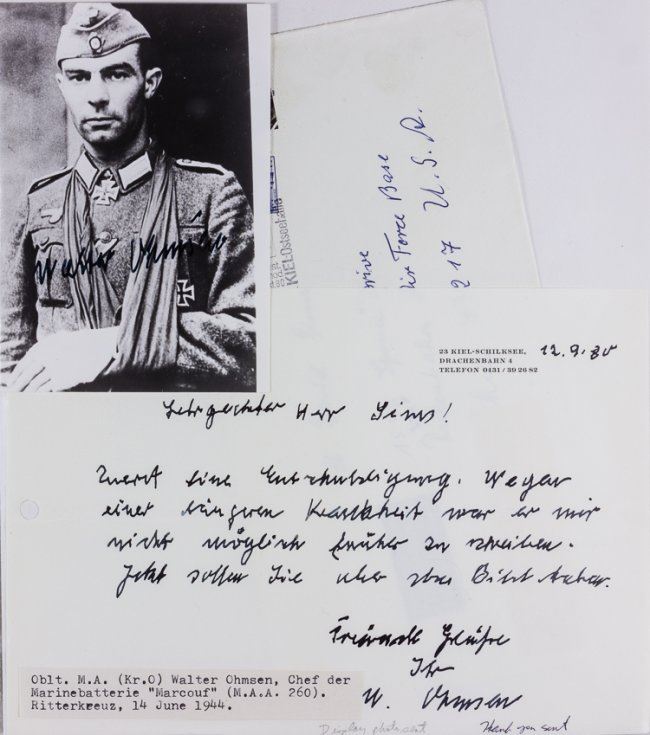 Walter Ohmsen
KIEL
Drive
Air Force Base
217 U.S.A.
23 KIEL-SCHILKSEE,
DRACHENBAHN 4
TELEFON 0431 / 39 26 82
12.9.80
Sehr geehrter Herr Sims!
Zuerst eine Entschuldigung. Wegen
einer längeren Krankheit war es mir
nicht möglich früher zu schreiben.
Jetzt sollen Sie aber das Bild haben.
Freundl Grüße
Ihr
W. Ohmsen
Oblt. M.A. (Kr.O) Walter Ohmsen, Chef der
Marinebatterie "Marcouf" (M.A.A. 260).
Ritterkreuz, 14 June 1944.
Display photo sent
Thank you sent